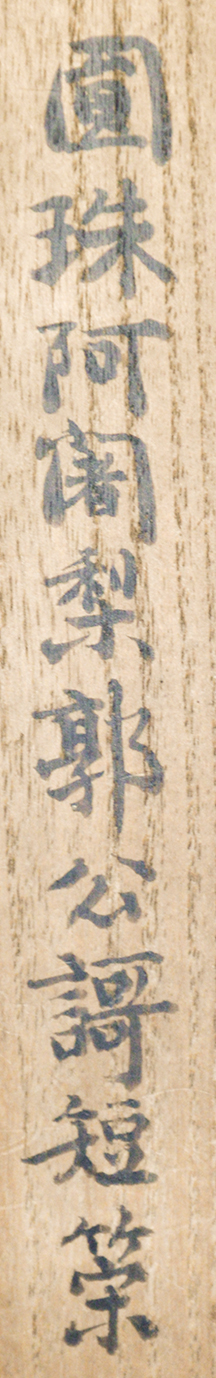 圓珠阿闍梨郭公謌短策